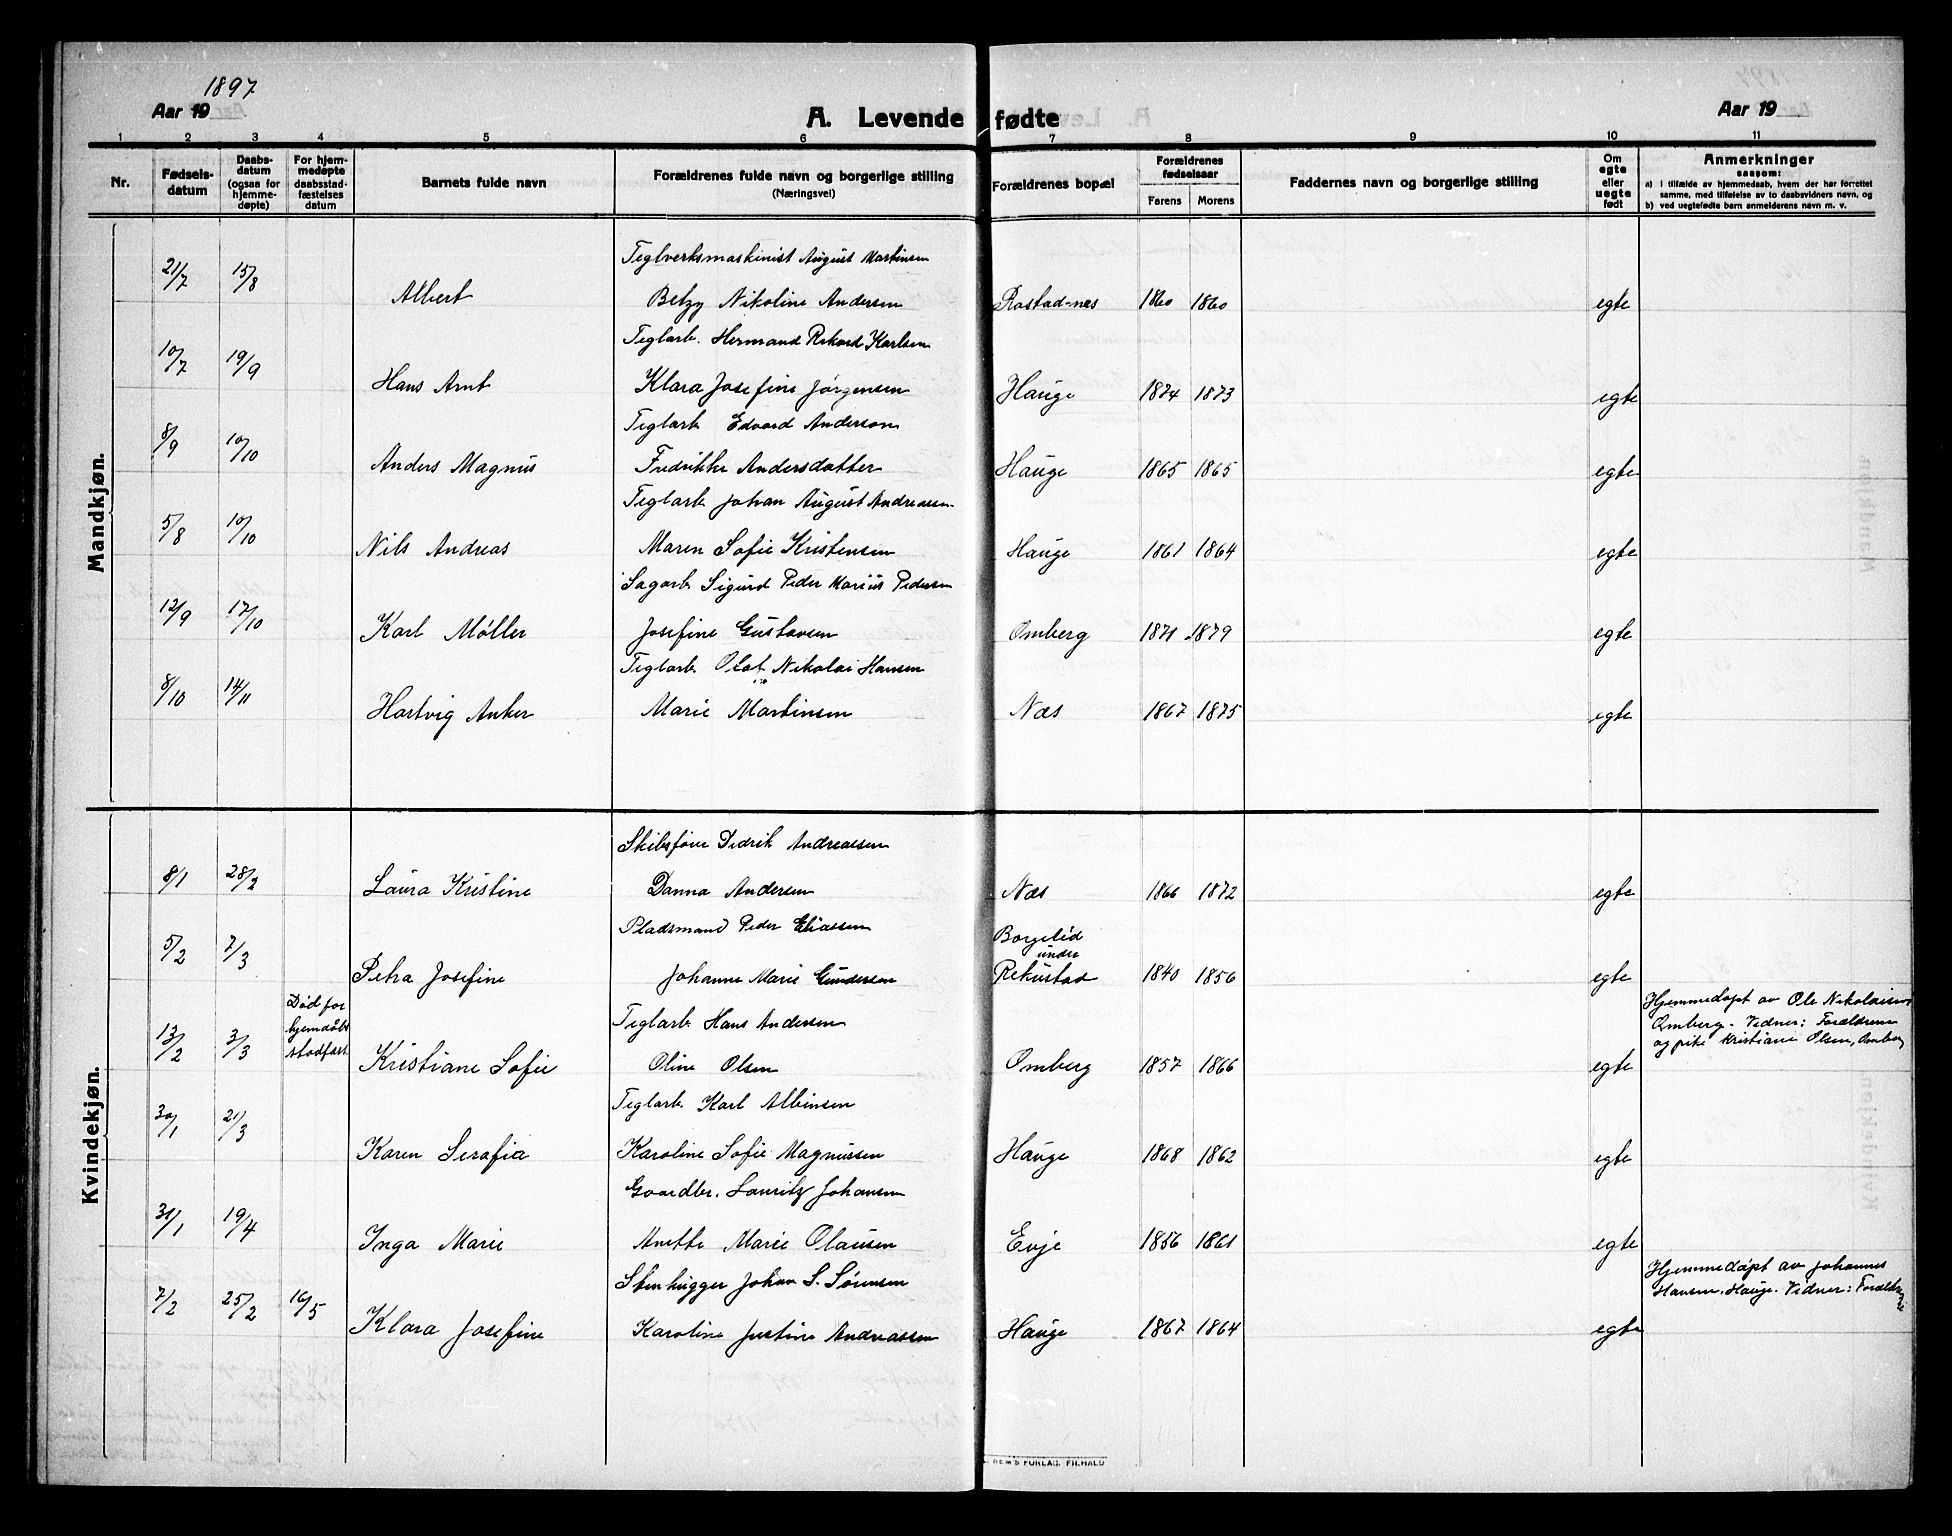 1897
Aar 19
A. Levende fødte
Aar 19
1 2 3 4 5 6 7 8 9 10 11
Nr.
Fødselsdatum
Daabsdatum (ogsaa for hjemmedøpte)
For hjemmedøpte daabsstadfæstelses datum
Barnets fulde navn
Forældrenes fulde navn og borgerlige stilling (Næringsvei)
Forældrenes bopæl
Forældrenes fødselsaar
Farens Morens
Faddernes navn og borgerlige stilling
Om egte eller uegte født
Anmerkninger
saasom:
a) i tilfælde av hjemmedaab, hvem der har forrettet
samme, med tilføielse av to daabsvidners navn, og
b) ved uegtefødte barn anmelderens navn m. v.
Mandkjøn.
Teglverksmaskinist August Martinsen
21/7 15/8 Albert Betzy Nikoline Andersen Rostad-næs 1860 1860 egte
Teglarb. Hermand Rikard Karlsen
10/7 19/9 Hans Arnt Klara Josefine Jørgensen Hauge 1874 1873 egte
Teglarb. Edvard Anderson
8/9 10/10 Anders Magnus Fredrikke Andersdatter Hauge 1865 1865 egte
Teglarb. Johan August Andreassen
5/8 10/10 Nils Andreas Maren Sofie Kristensen Hauge 1861 1864 egte
Sagarb. Sigurd Peder Marius Pedersen
12/9 17/10 Karl Møller Josefine Gustavsen Omberg 1871 1879 egte
Teglarb. Olaf Nikolai Hansen
8/10 14/11 Hartvig Anker Marie Martinsen Næs 1867 1875 egte
Kvindekjøn.
Skibsfører Didrik Andreassen
8/1 28/2 Laura Kristine Danna Andersen Næs 1866 1872 egte
Pladsmand Peder Eliassen Borgelid
under
5/2 7/3 Petra Josefine Johanne Marie Gundersen Rekustad 1840 1856 egte
Død før
hjemdåbs
stadfæst.
Teglarb. Hans Andersen
Hjemmedøpt av Ole Nikolaisen
Omberg. Vidner: Forældrene
og pike Kristiane Olsen, Omberg
13/2 3/3 Kristiane Sofie Oline Olsen Omberg 1857 1866 egte
Teglarb. Karl Albinsen
30/1 21/3 Karen Serafia Karoline Sofie Magnussen Hauge 1868 1862 egte
Gaardbr. Lauritz Johansen
31/1 19/4 Inga Marie Anette Marie Olausen Evje 1856 1861 egte
Stenhugger Johan S. Sørensen
Hjemmedøpt av Johannes
Hansen. Hauge. Vidner: Forældrene
7/2 25/2 16/5 Klara Josefine Karoline Justine Andreassen Hauge 1867 1864 egte
FORLAG. FR.HALD